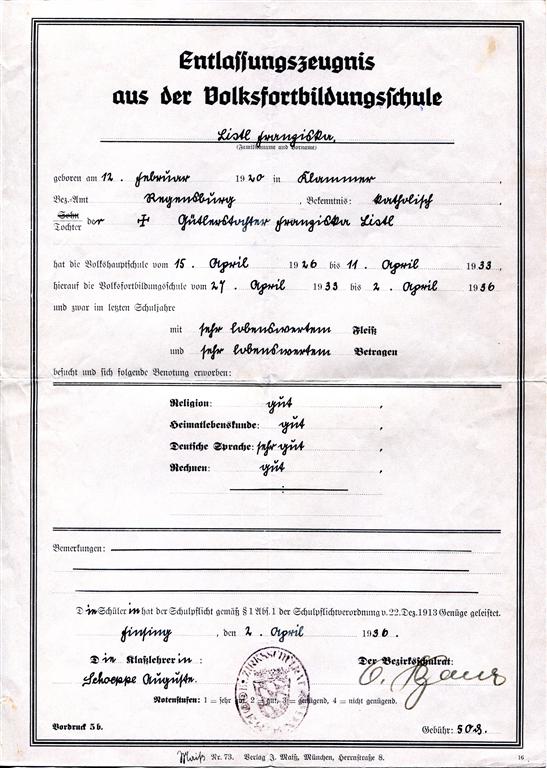 Entlassungszeugnis
aus der Volksfortbildungsschule
Listl Franziska.
(Familienname und Vorname)
geboren am 12. Februar 1920 in Klammer,
Bez.-Amt Regensburg, Bekenntnis: katholisch
Sohn
Tochter der ✝ Gütlerstochter Franziska Listl
hat die Volkshauptschule vom 15. April 1926 bis 11. April 1933,
hierauf die Volksfortbildungsschule vom 27. April 1933 bis 2. April 1936
und zwar im letzten Schuljahre
mit sehr lobenswertem Fleiß
und sehr lobenswertem Betragen
besucht und sich folgende Benotung erworben:
Religion: gut,
Heimatlebenskunde: gut,
Deutsche Sprache: sehr gut,
Rechnen: gut,
Bemerkungen:
Die Schülerin hat der Schulpflicht gemäß § 1 Abs. 1 der Schulpflichtverordnung v. 22. Dez. 1913 Genüge geleistet.
Finsing, den 2. April 1936.
Die Klaßlehrerin: Der Bezirksschulrat:
Schoeppe Auguste.
Notenstufen: 1 = sehr gut, 2 = gut, 3 = genügend, 4 = nicht genügend.
Vordruck 5b. Gebühr: 50 ₰.
Maiß Nr. 73. Verlag J. Maiß, München, Herrnstraße 8. 16